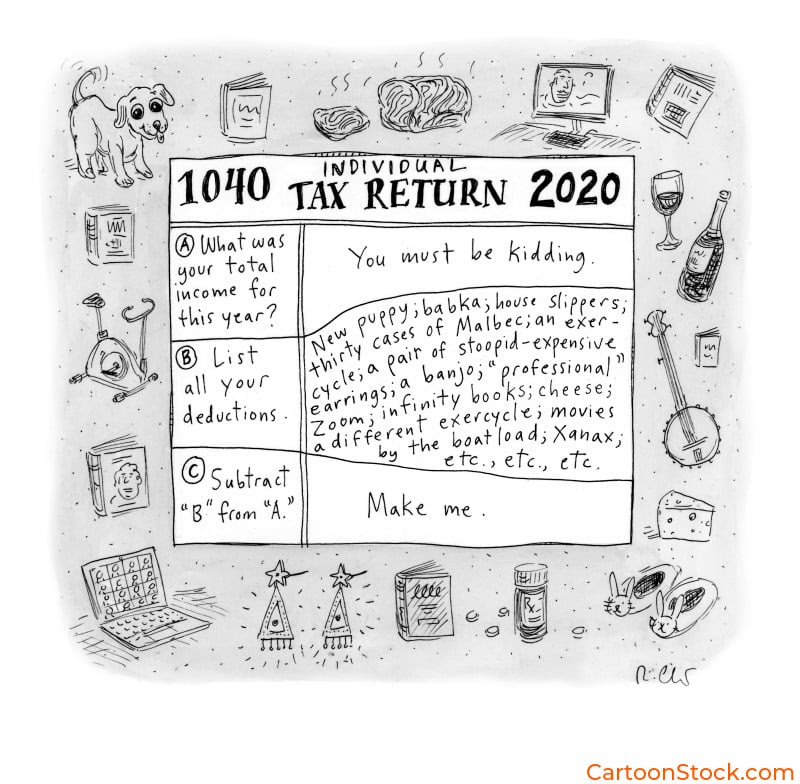 INDIVIDUAL
1040 TAX RETURN 2020
A What was
your total
income for
this year?
You must be kidding.
B List
all your
deductions.
New puppy; babka; house slippers;
thirty cases of Malbec; an exer-
cycle; a pair of stoopid-expensive
earrings; a banjo; "professional"
Zoom; infinity books; cheese;
a different exercycle; movies
by the boatload; Xanax;
etc., etc., etc.
C Subtract
"B" from "A."
Make me.
Rx
R. Chr
CartoonStock.com